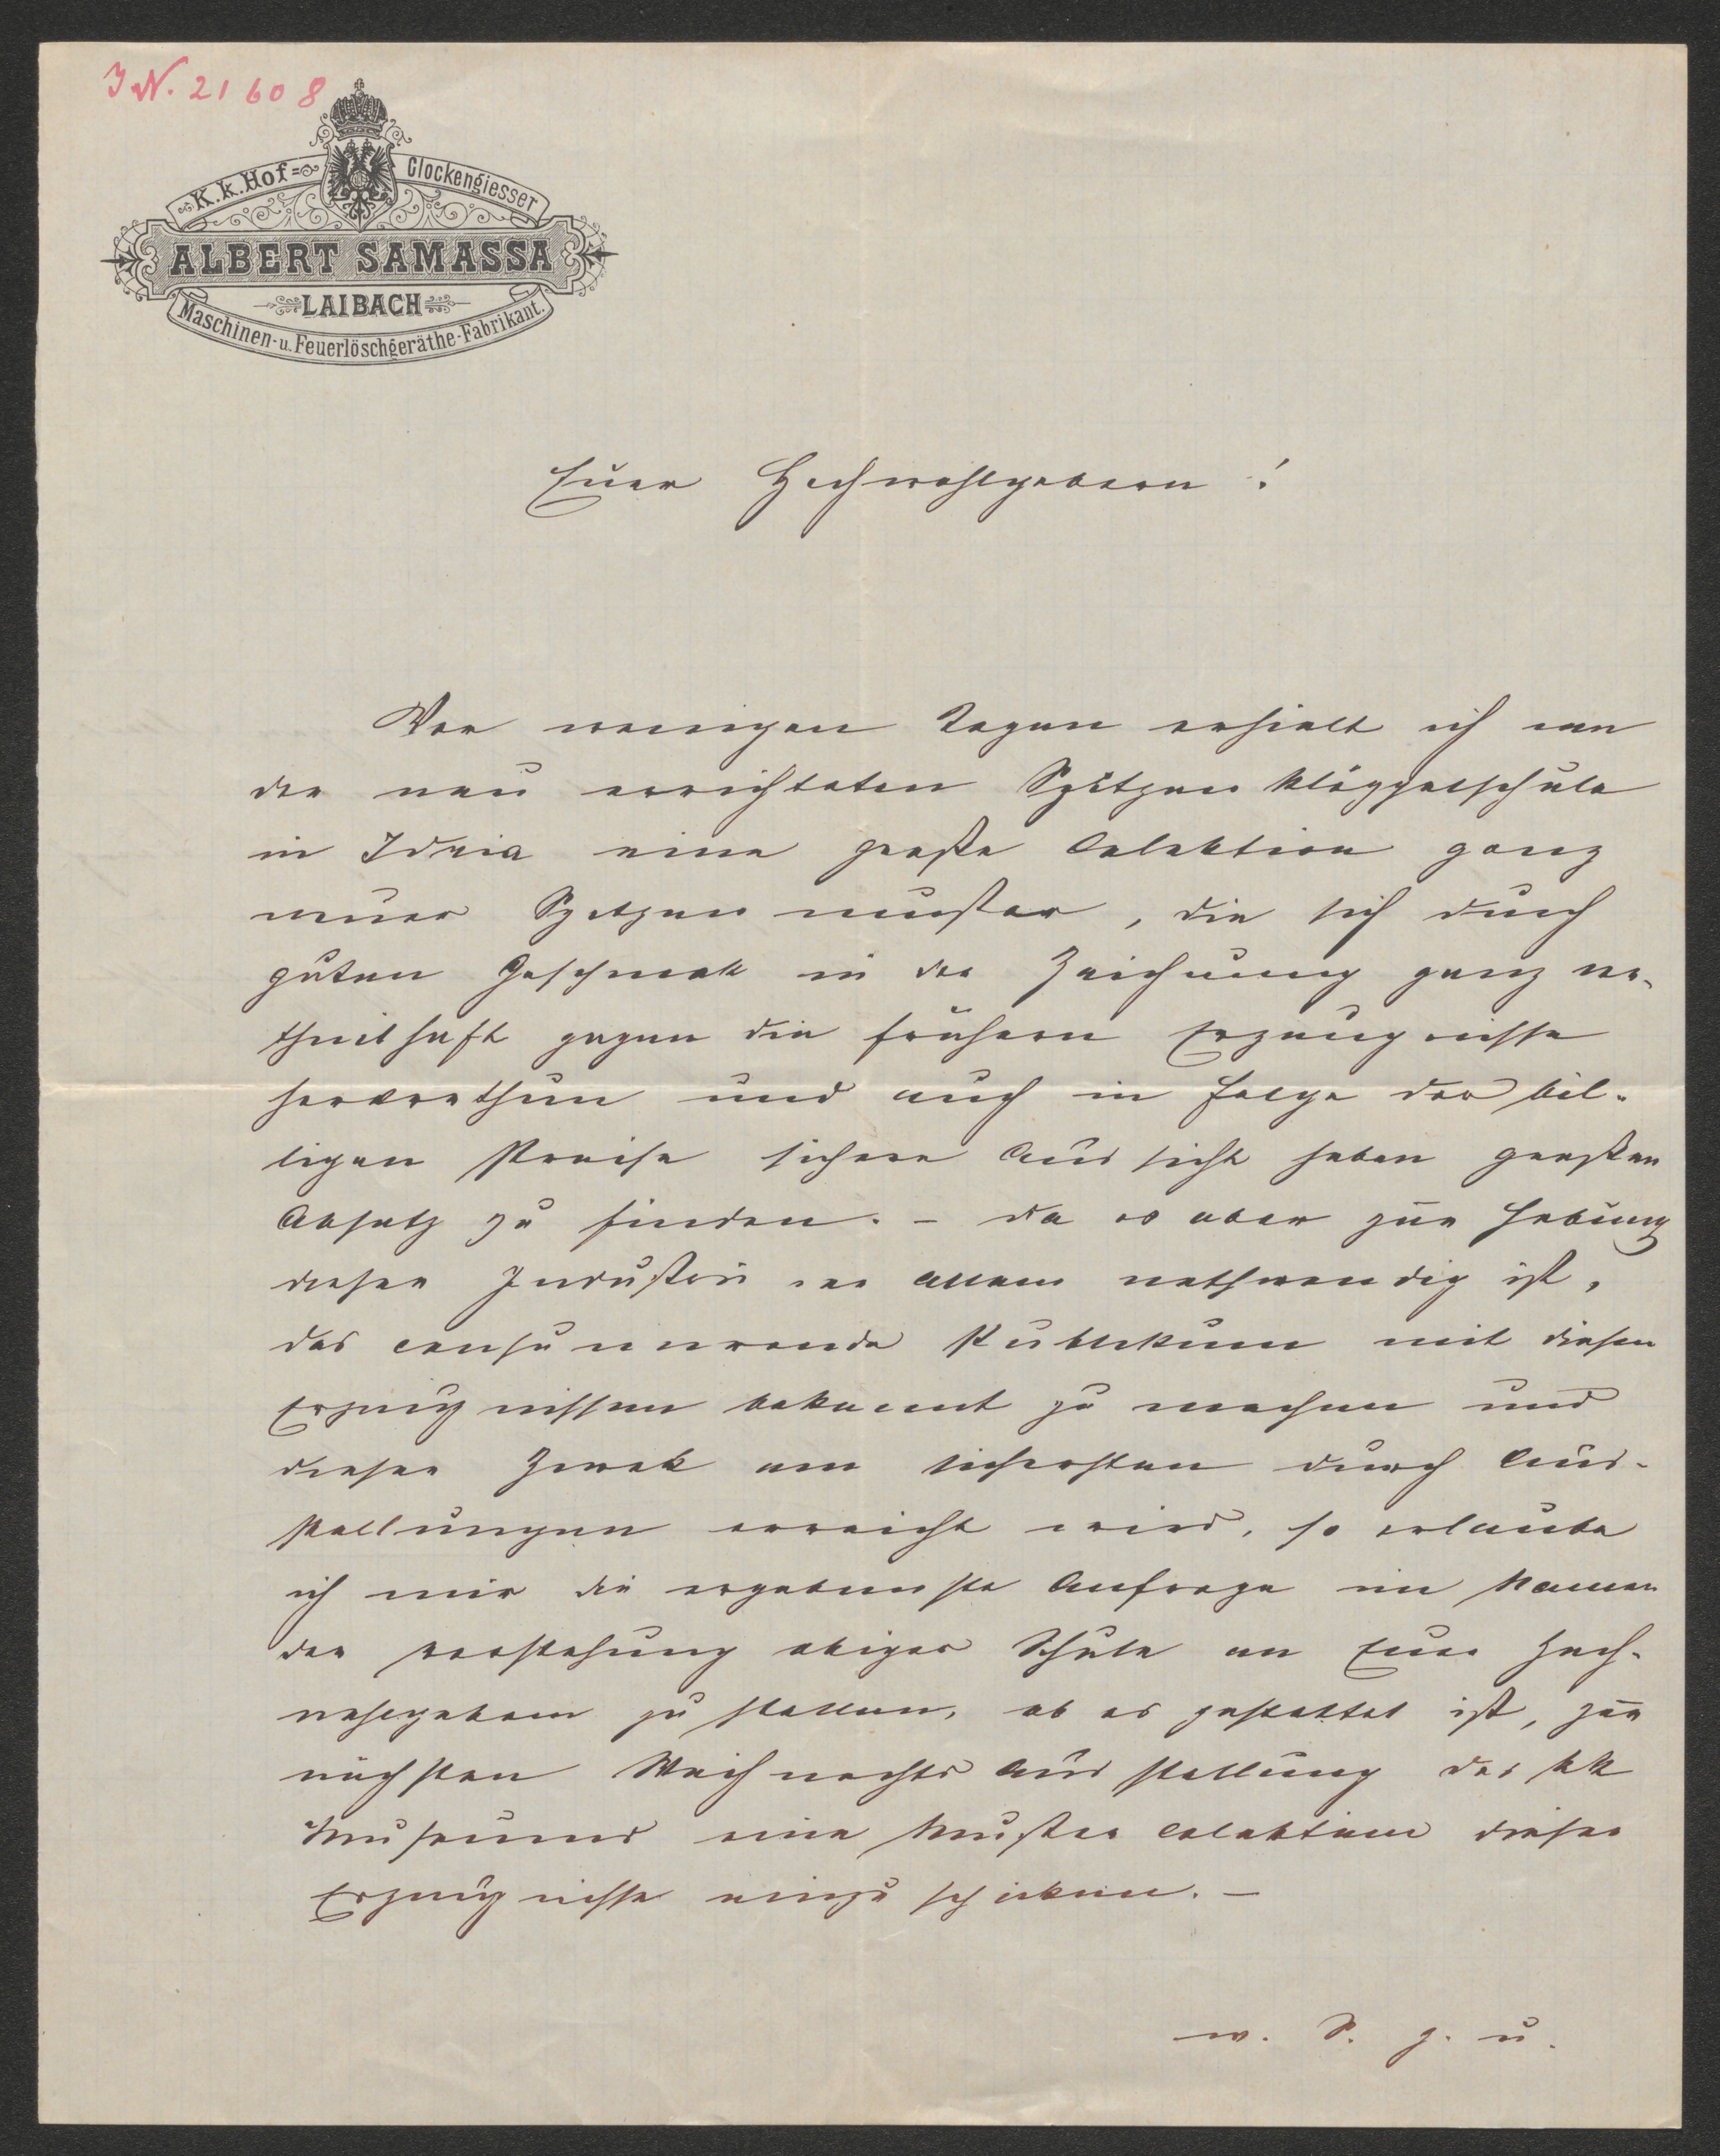 I.N. 21608
K.k. Hof= Glockengiesser
ALBERT SAMASSA
LAIBACH
Maschinen- u. Feuerlöschgeräthe-Fabrikant.
Euer Hochwohlgeboren!
Vor wenigen Tagen erhielt ich von
der neu errichteten Spitzen klöppelschule
in Idria eine große Colektion ganz
neuer Spitzen muster, die sich durch
guten Geschmak in der Zeichnung ganz vor-
theilhaft gegen die frühern Erzeugnisse
hervorthun und auch in Folge der bil-
ligen Preise sichere Aussicht haben großen
Absatz zu finden. - da es aber zur Hebung
dieser Industrie vor allem nothwendig ist,
das consumirende Publikum mit diesen
Erzeugnissen bekannt zu machen und
dieser Zwek am sichersten durch Aus-
stellungen erreicht wird, so erlaube
ich mir die ergebenste Anfrage im Namen
der Vorstehung obiger Schule an Euer Hoch-
wohlgeboren zu stellen, ob es gestattet ist, zur
nächsten Weihnachts Ausstellung des kk
Museums eine Muster Colektion dieser
Erzeugnisse einzu schicken. -
w. S. g. u.